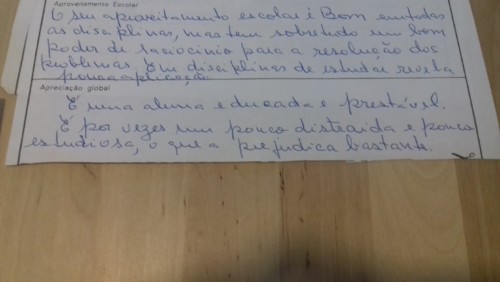 Aproveitamento Escolar
O seu aproveitamento escolar é Bom em todas
as disciplinas, mas tem sobretudo um bom
poder de raciocínio para a resolução dos
problemas. Em disciplinas de estudar revela
pouca aplicação.
Apreciação global
É uma aluna educada e prestável.
É por vezes um pouco distraída e pouco
estudiosa, o que a prejudica bastante.